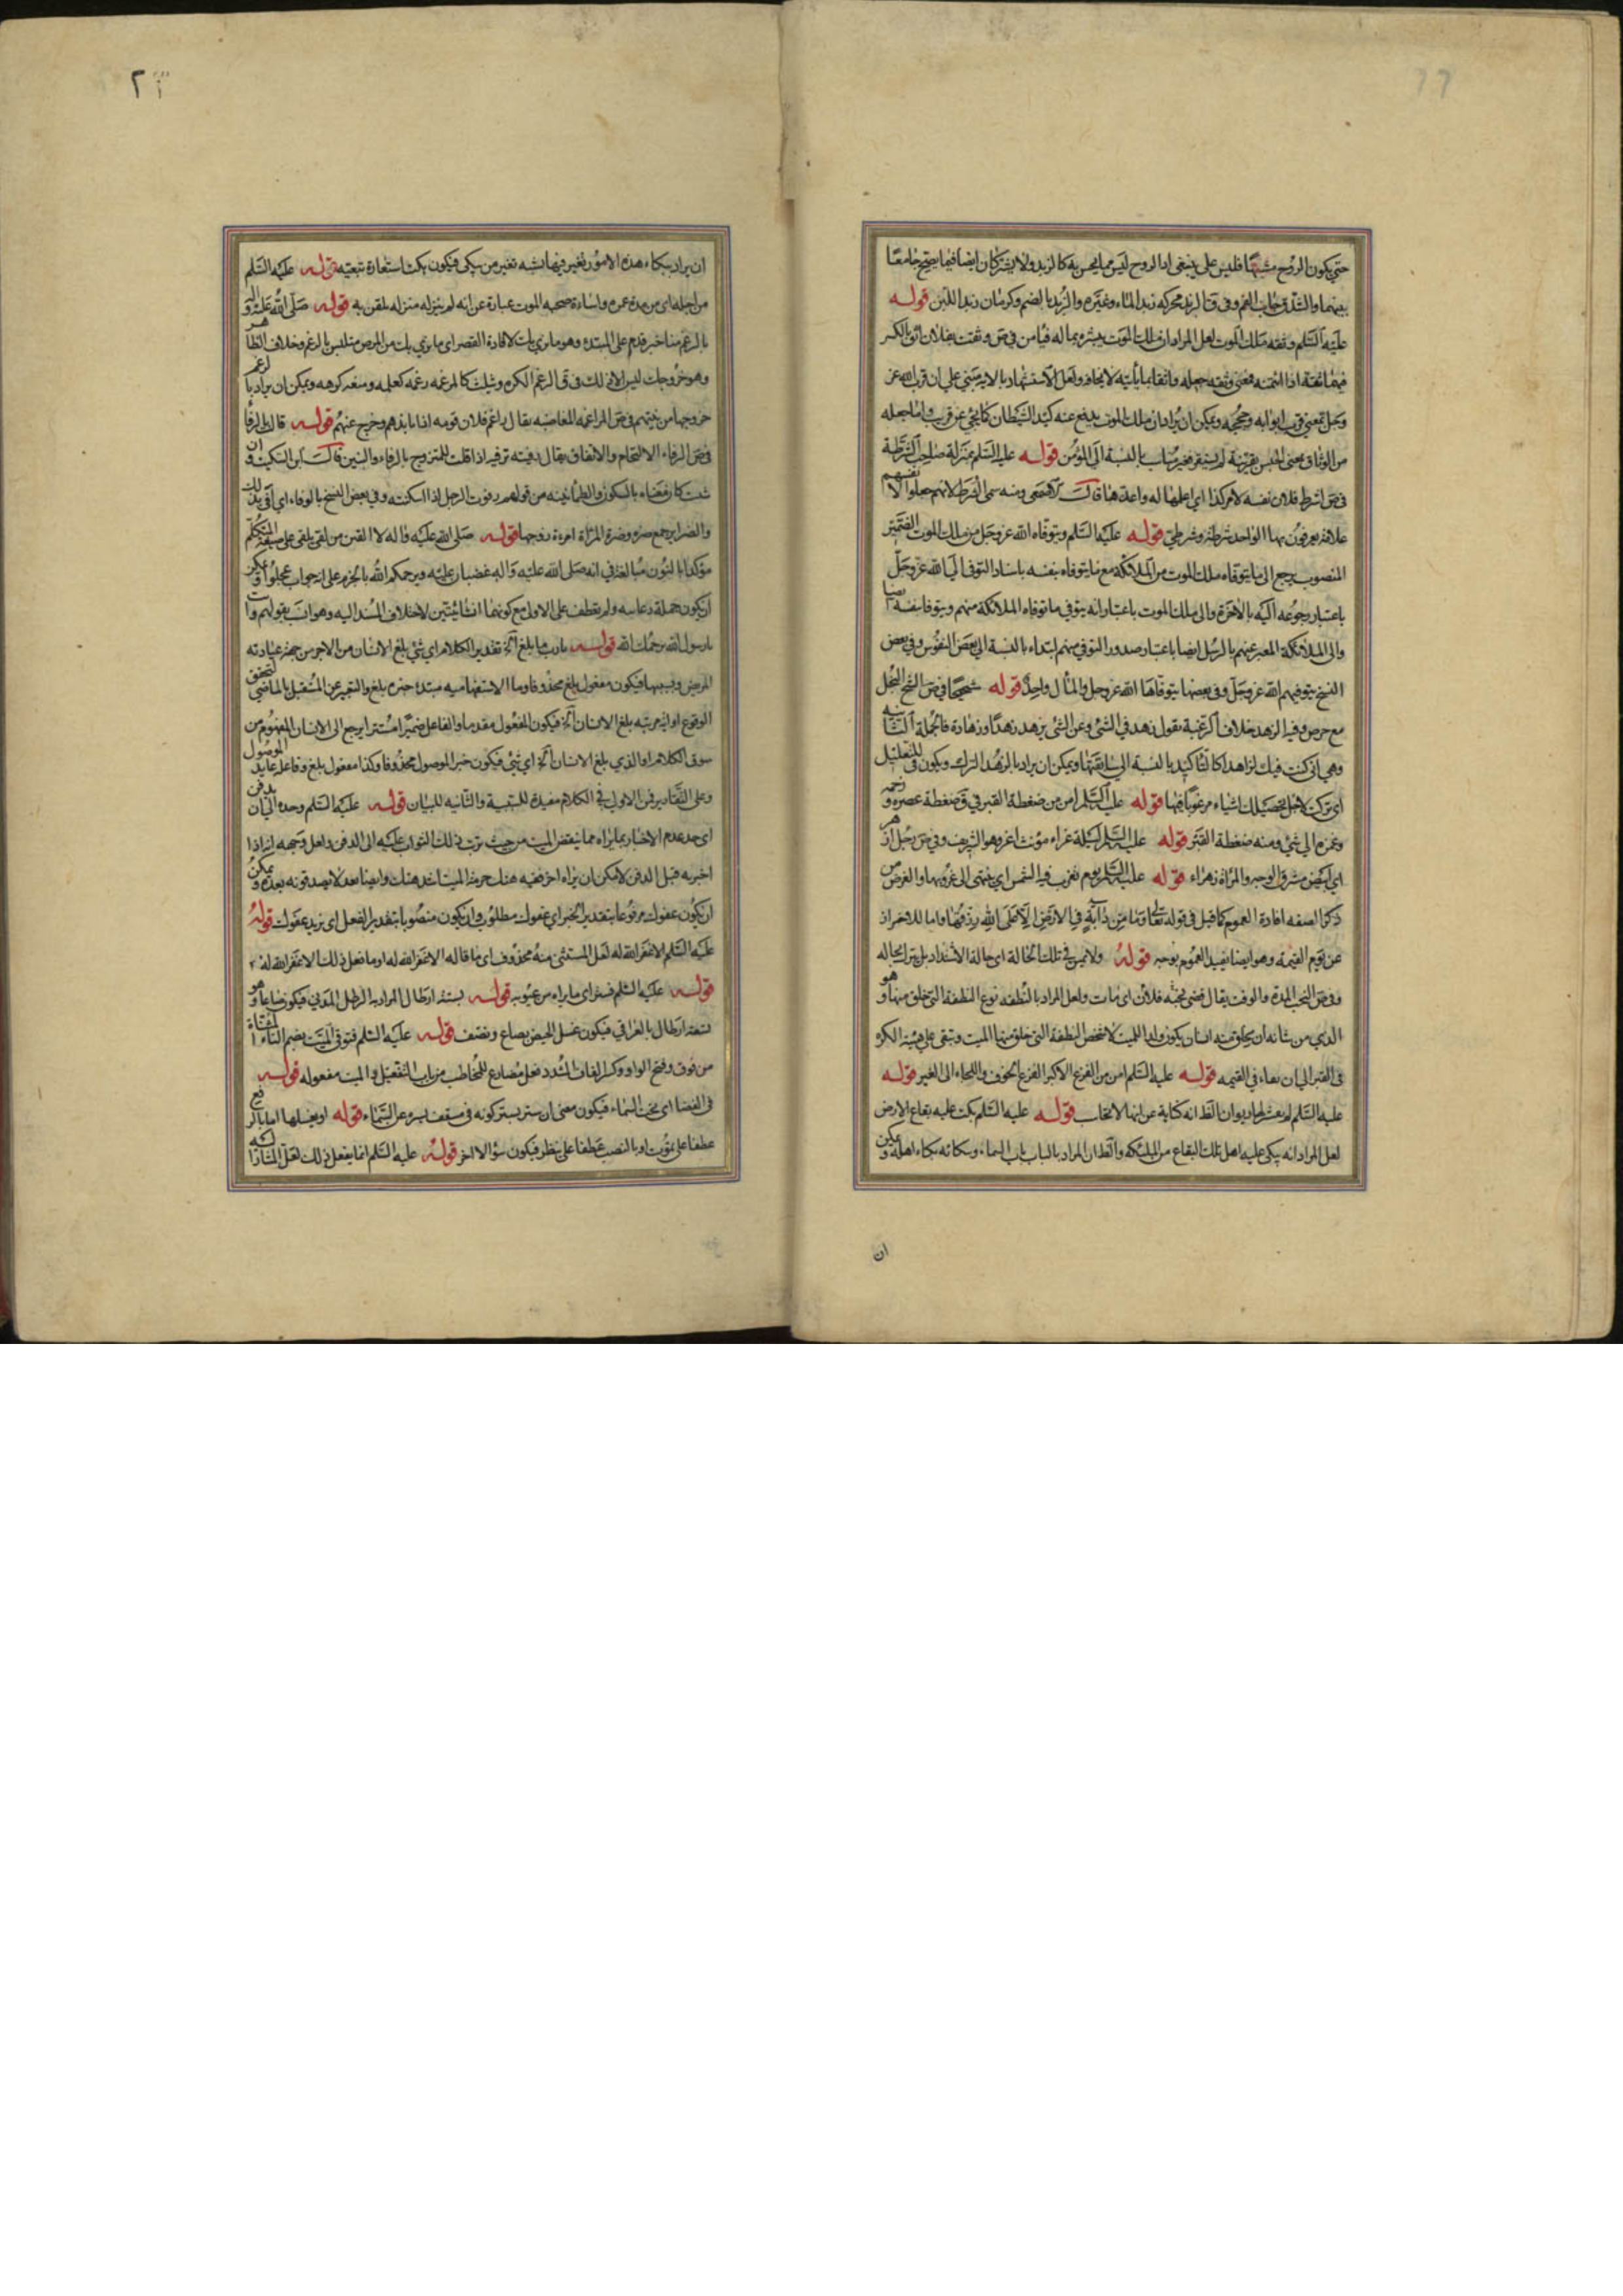 حتى يكون الروح مشبها فليس على ينبغى اذ الروح ليس مما يحس به كالزبد ولا يشتركان ايضا فيما يصح جامعا
بينهما والشدق جانب الفم وفى ق الزبد محركه زبد الماء وغيره والزبد بالضم وكرمان زبد اللبن قوله
عليه السلم وثقه ملك الموت لعل المراد ان ملك الموت يبشره بماله فيأمن فى ص وثقت بفلان اثق بالكسر
فيهما ثقة اذا ائتمنته فمعنى وثقه جعله واثقا بما يأتيه لا يخافه ولعل الاستشهاد بالا يبتنى على ان قرب الله عز
وجل بمعنى قرب ابوابه وحججه ويمكن ان يراد ان ملك الموت يدفع عنه كيد الشيطان كما يجئ عن قريب واما جعله
من الوثاق بمعنى الحبس بقرينة لم يستقر فغير مناسب بالنسبة الى المؤمن قوله عليه السلم بمنزلة صاحب الشرطة
فى ص اشرط فلان نفسه لامر كذا اى اعلمها له واعدها قال الاصمعى ومنه سمى الشرط لانهم جعلوا لانفسهم
علامة يعرفون بها الواحد شرطة وشرطى قوله عليه السلم ويتوفاه الله عز وجل من ملك الموت الضمير
المنصوب يرجع الى ما يتوفاه ملك الموت من الملائكة مع ما يتوفاه بنفسه باسناد التوفى الى الله عز وجل
باعتبار رجوعه اليه بالاخرة والى ملك الموت باعتبار انه يتوفى ما توفاه الملائكة منهم ويتوفا بنفسه ايضا
والى الملائكة المعبر عنهم بالرسل ايضا باعتبار صدور التوفى منهم ابتداء بالنسبة الى بعض النفوس وفى بعض
النسخ يتوفيهم الله عز وجل وفى بعضها يتوفاها الله عز وجل والمأل واحد قوله شحيحا فى ص الشح البخل
مع حرص وفيه الزهد خلاف الرغبة تقول زهد فى الشئ وعن الشئ يزهد زهدا وزهادة فالجملة الثانيه
وهى انى كنت فيك لزاهدا كالتأكيد بالنسبة الى سابقتها ويمكن ان يراد بالزهد الترك ويكون فى للتعليل
اى تركت لاجل تحصيلك اشياء مرغوبا فيها قوله عليه السلم امن من ضغطة القبر فى ق ضغطه عصره وزحمه
وغمزه الى شئ ومنه ضغطة القبر قوله عليه السلم ليلة غراء مؤنث اغر وهو الشريف وفى ص رجل ازهر
اى ابيض مشرق الوجه والمرأة زهراء قوله عليه السلم يوم تغرب فيه الشمس اى ينتهى الى غروبها والغرض من
ذكر الصفه افادة العموم كما قيل فى قوله تعالى وما من دابة فى الارض الا على الله رزقها واما للاحتراز
عن يوم القيمة وهو ايضا يفيد العموم بوجه قوله ولا يمس فى تلك الحالة اى حالة الاشتداد بل يترك بحاله
وفى ص النحب المدة والوقت يقال قضى نحبه فلان اى مات ولعل المراد بالنطفه نوع النطفة التى خلق منها وهو
الذى من شانه ان يخلق منه انسان يكون ولدا للميت لا شخص النطفة التى خلق منها الميت وتبقى على هيئة الكرة
فى القبر الى ان يعاد فى القيمه قوله عليه السلم امن من الفزع الاكبر الفزع الخوف والالتجاء الى الغير قوله
عليه السلم لم ينشر لها ديوان الظ انه كناية عن انها لا تحاسب قوله عليه السلم بكت عليه بقاع الارض
لعل المراد انه يبكى عليه اهل تلك البقاع من الملئكه والظ ان المراد بالباب باب السماء وبكائه بكاء اهله ويمكن
ان
ان يراد ببكاء هذه الامور تغير فيها يشبه تغير من يبكى فيكون بكت استعارة تبعيه قوله عليه السلم
من اجله اى من مدة عمره واساءة صحبه الموت عبارة عن انه لم ينزله منزله يلقن به قوله صلى الله عليه واله
بالرغم منا خبر قدم على المبتدء وهو ما نرى بك لافادة القصر اى ما نرى بك من المرض متلبس بالرغم وخلاف الظاهر
وهو خروجك ليس الا ذلك فى ق الرغم الكره ويثلث كالمرغمه رغمه كعلمه ومنعه كرهه ويمكن ان يراد بالرغم
خروجها من بينهم فى ص المراغمه المغاضبه يقال راغم فلان قومه اذا نابذهم وخرج عنهم قوله قالت بالرفا
فى ص الرفاء الالتحام والاتفاق يقال رفيته ترفيه اذا قلت للمتزوج بالرفاء والبنين قال ابن السكيت وان
شئت كان معناه بالسكون والطمأنينه من قولهم رفوت الرجل اذا اسكنته وفى بعض النسخ بالوفاء اى افى بذلك
والضراير جمع ضره وضرة المرأة امرءة زوجها قوله صلى الله عليه واله لا القين من لقى يلقى على صيغة المتكلم
مؤكدا بالنون مبالغة فى انه صلى الله عليه واله غضبان عليه ويرحمكم الله بالجزم على انه جواب عجلوا ويمكن
ان يكون جملة دعاسه ولم يعطف على الاول مع كونهما انشائيتين لاختلاف المسند اليه وهو انسب بقولهم وانت
يا رسول الله يرحمك الله قوله يا رب ما بلغ اه تقدير الكلام اى شئ بلغ الانسان من الاجر من جهة عيادته
المريض وبسببها فيكون مفعول بلغ محذوفا وما الاستفهاميه مبتدء خبره بلغ والتعبير عن المستقبل بالماضى لتحقق
الوقوع او اية مرتبه بلغ الانسان اه فيكون المفعول مقدما والفاعل ضميرا مستترا يرجع الى الانسان المفهوم من
سوق الكلام او الذى بلغ الانسان اه اى شئ فيكون خبر الموصول محذوفا وكذا مفعول بلغ وفاعله عايد الموصول
وعلى التقادير فمن الاولى فى الكلام مفيدة للسببية والثانيه للبيان قوله عليه السلم وحده الى ان يدفن
اى حد عدم الاخبار بما يراه مما ينقص الميت من حيث ترتب ذلك الثواب عليه الى الدفن ولعل وجهه انه اذا
اخبر به قبل الدفن لامكن ان يراه اخر ففيه هتك حرمة الميت اشد هتك وايضا بعد لا يصدقونه بعده ويمكن
ان يكون عفوك مرفوعا بتقدير الخبر اى عفوك مطلوب وان يكون منصوبا بتقدير الفعل اى نريد عفوك قوله
عليه السلم الا غفر الله له لعل المستثنى منه محذوف اى ما قاله الا غفر الله له او ما فعل ذلك الا غفر الله له
قوله عليه السلم فستر اى ما يراه من عيوبه قوله بستة ارطال المراد به الرطل المدنى فيكون صاعا وهو
تسعة ارطال بالعراقى فيكون غسل الحيض بصاع ونصف قوله عليه السلم فتوقى الميت بضم التاء المثناة
من فوق وفتح الواو وكسر القاف المشدد فعل مضارع للمخاطب من باب التفعيل والميت مفعوله قوله
فى الفضا اى تحت السماء فيكون معنى ان ستر بستر كونه فى سقف يستره عن السماء قوله او يغسلها اما بالرفع
عطفا على تموت او بالنصب عطفا على ينظر فيكون سؤالا اخر قوله عليه السلم انما يفعل ذلك لعل المشار اليه